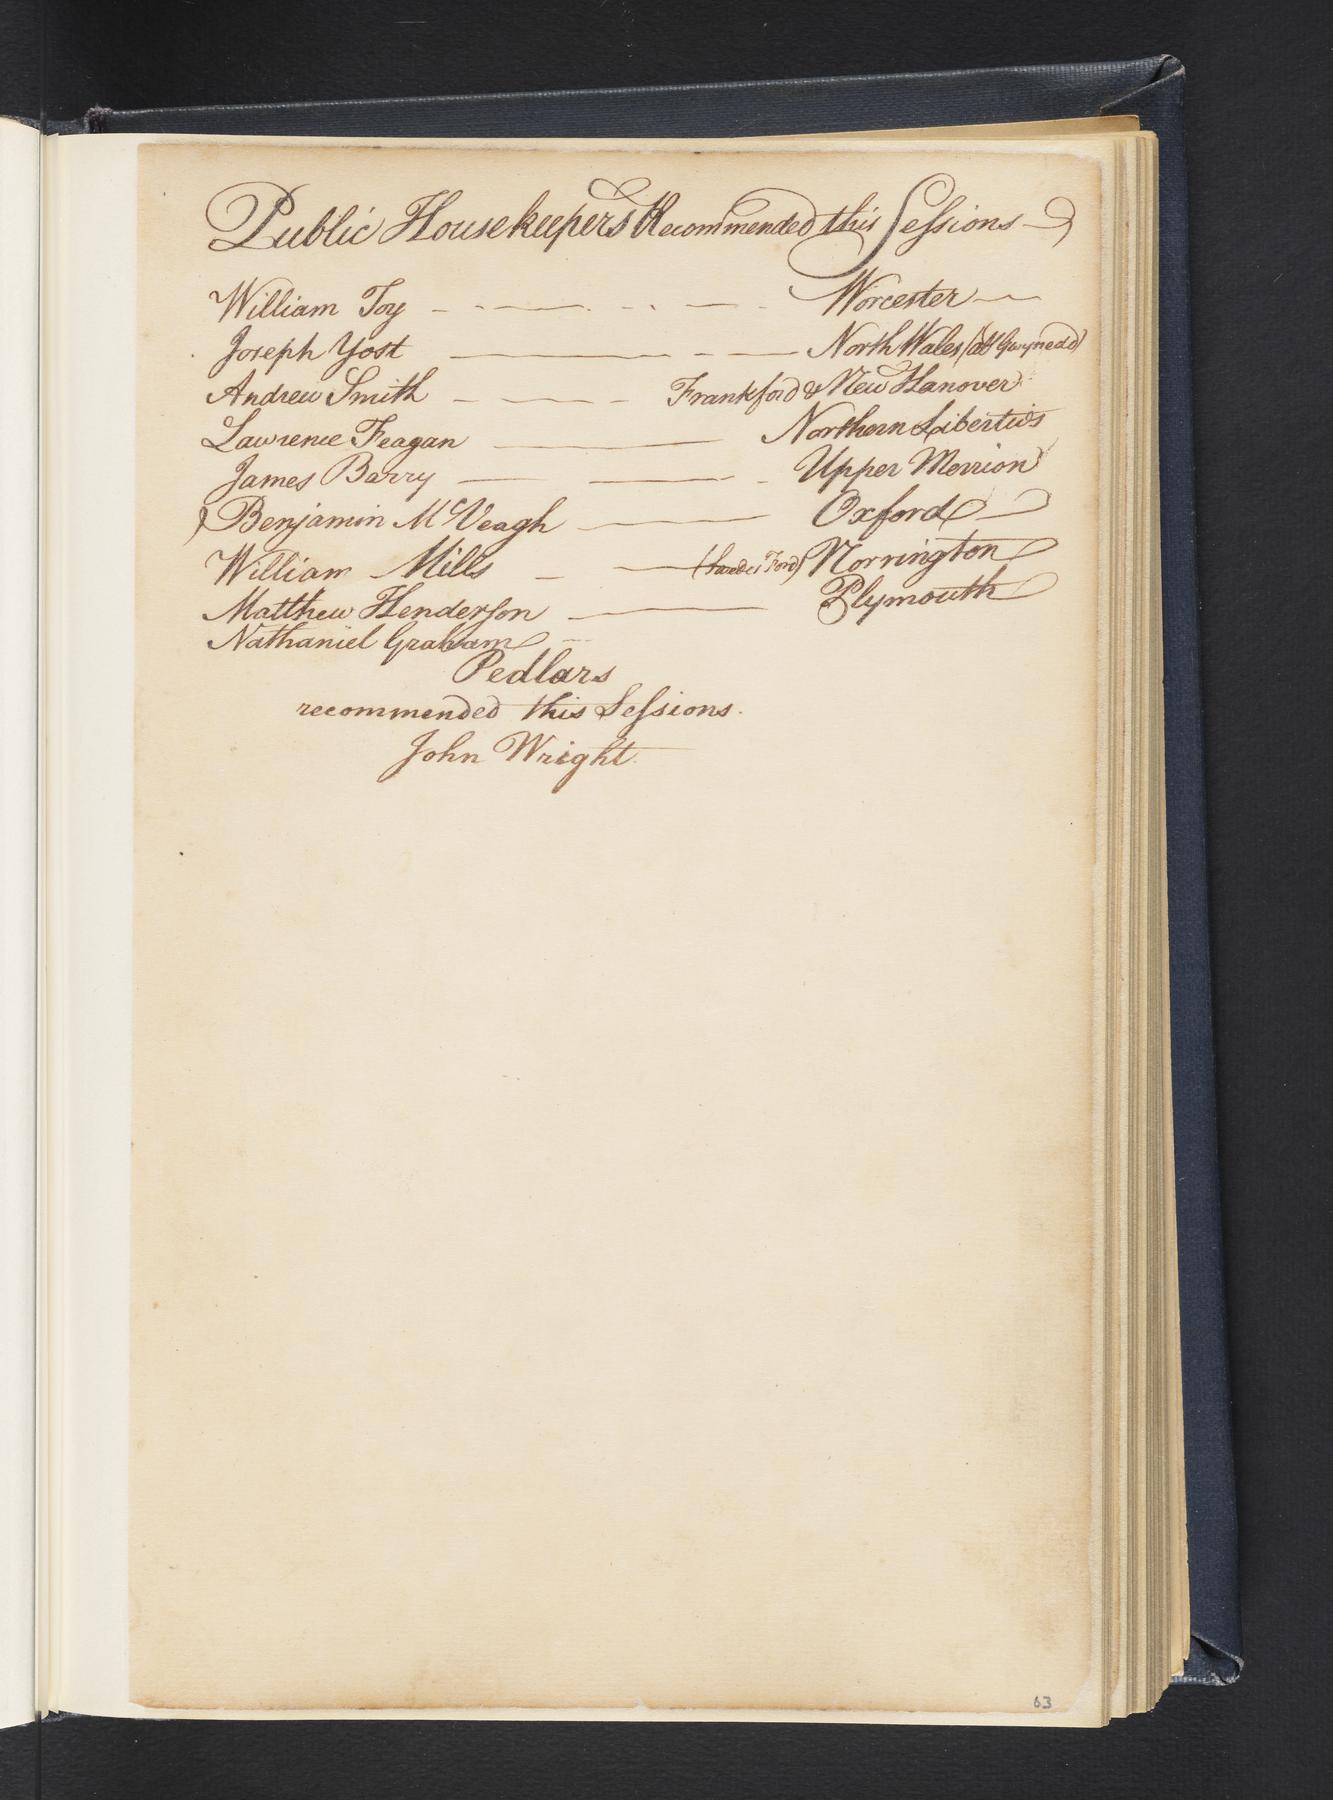 Public Housekeepers Recommended this Sessions
William Toy Worcester
Joseph Yost North Wales (alt Gwynedd)
Andrew Smith Frankford & New Hanover
Lawrence Feagan Northern Liberties
James Barry Upper Merrion
Benjamin McVeagh Oxford
William Mills (Swedes Ford) Norrington
Matthew Henderson Plymouth
Nathaniel Graham
Pedlars
recommended this Sessions.
John Wright
63